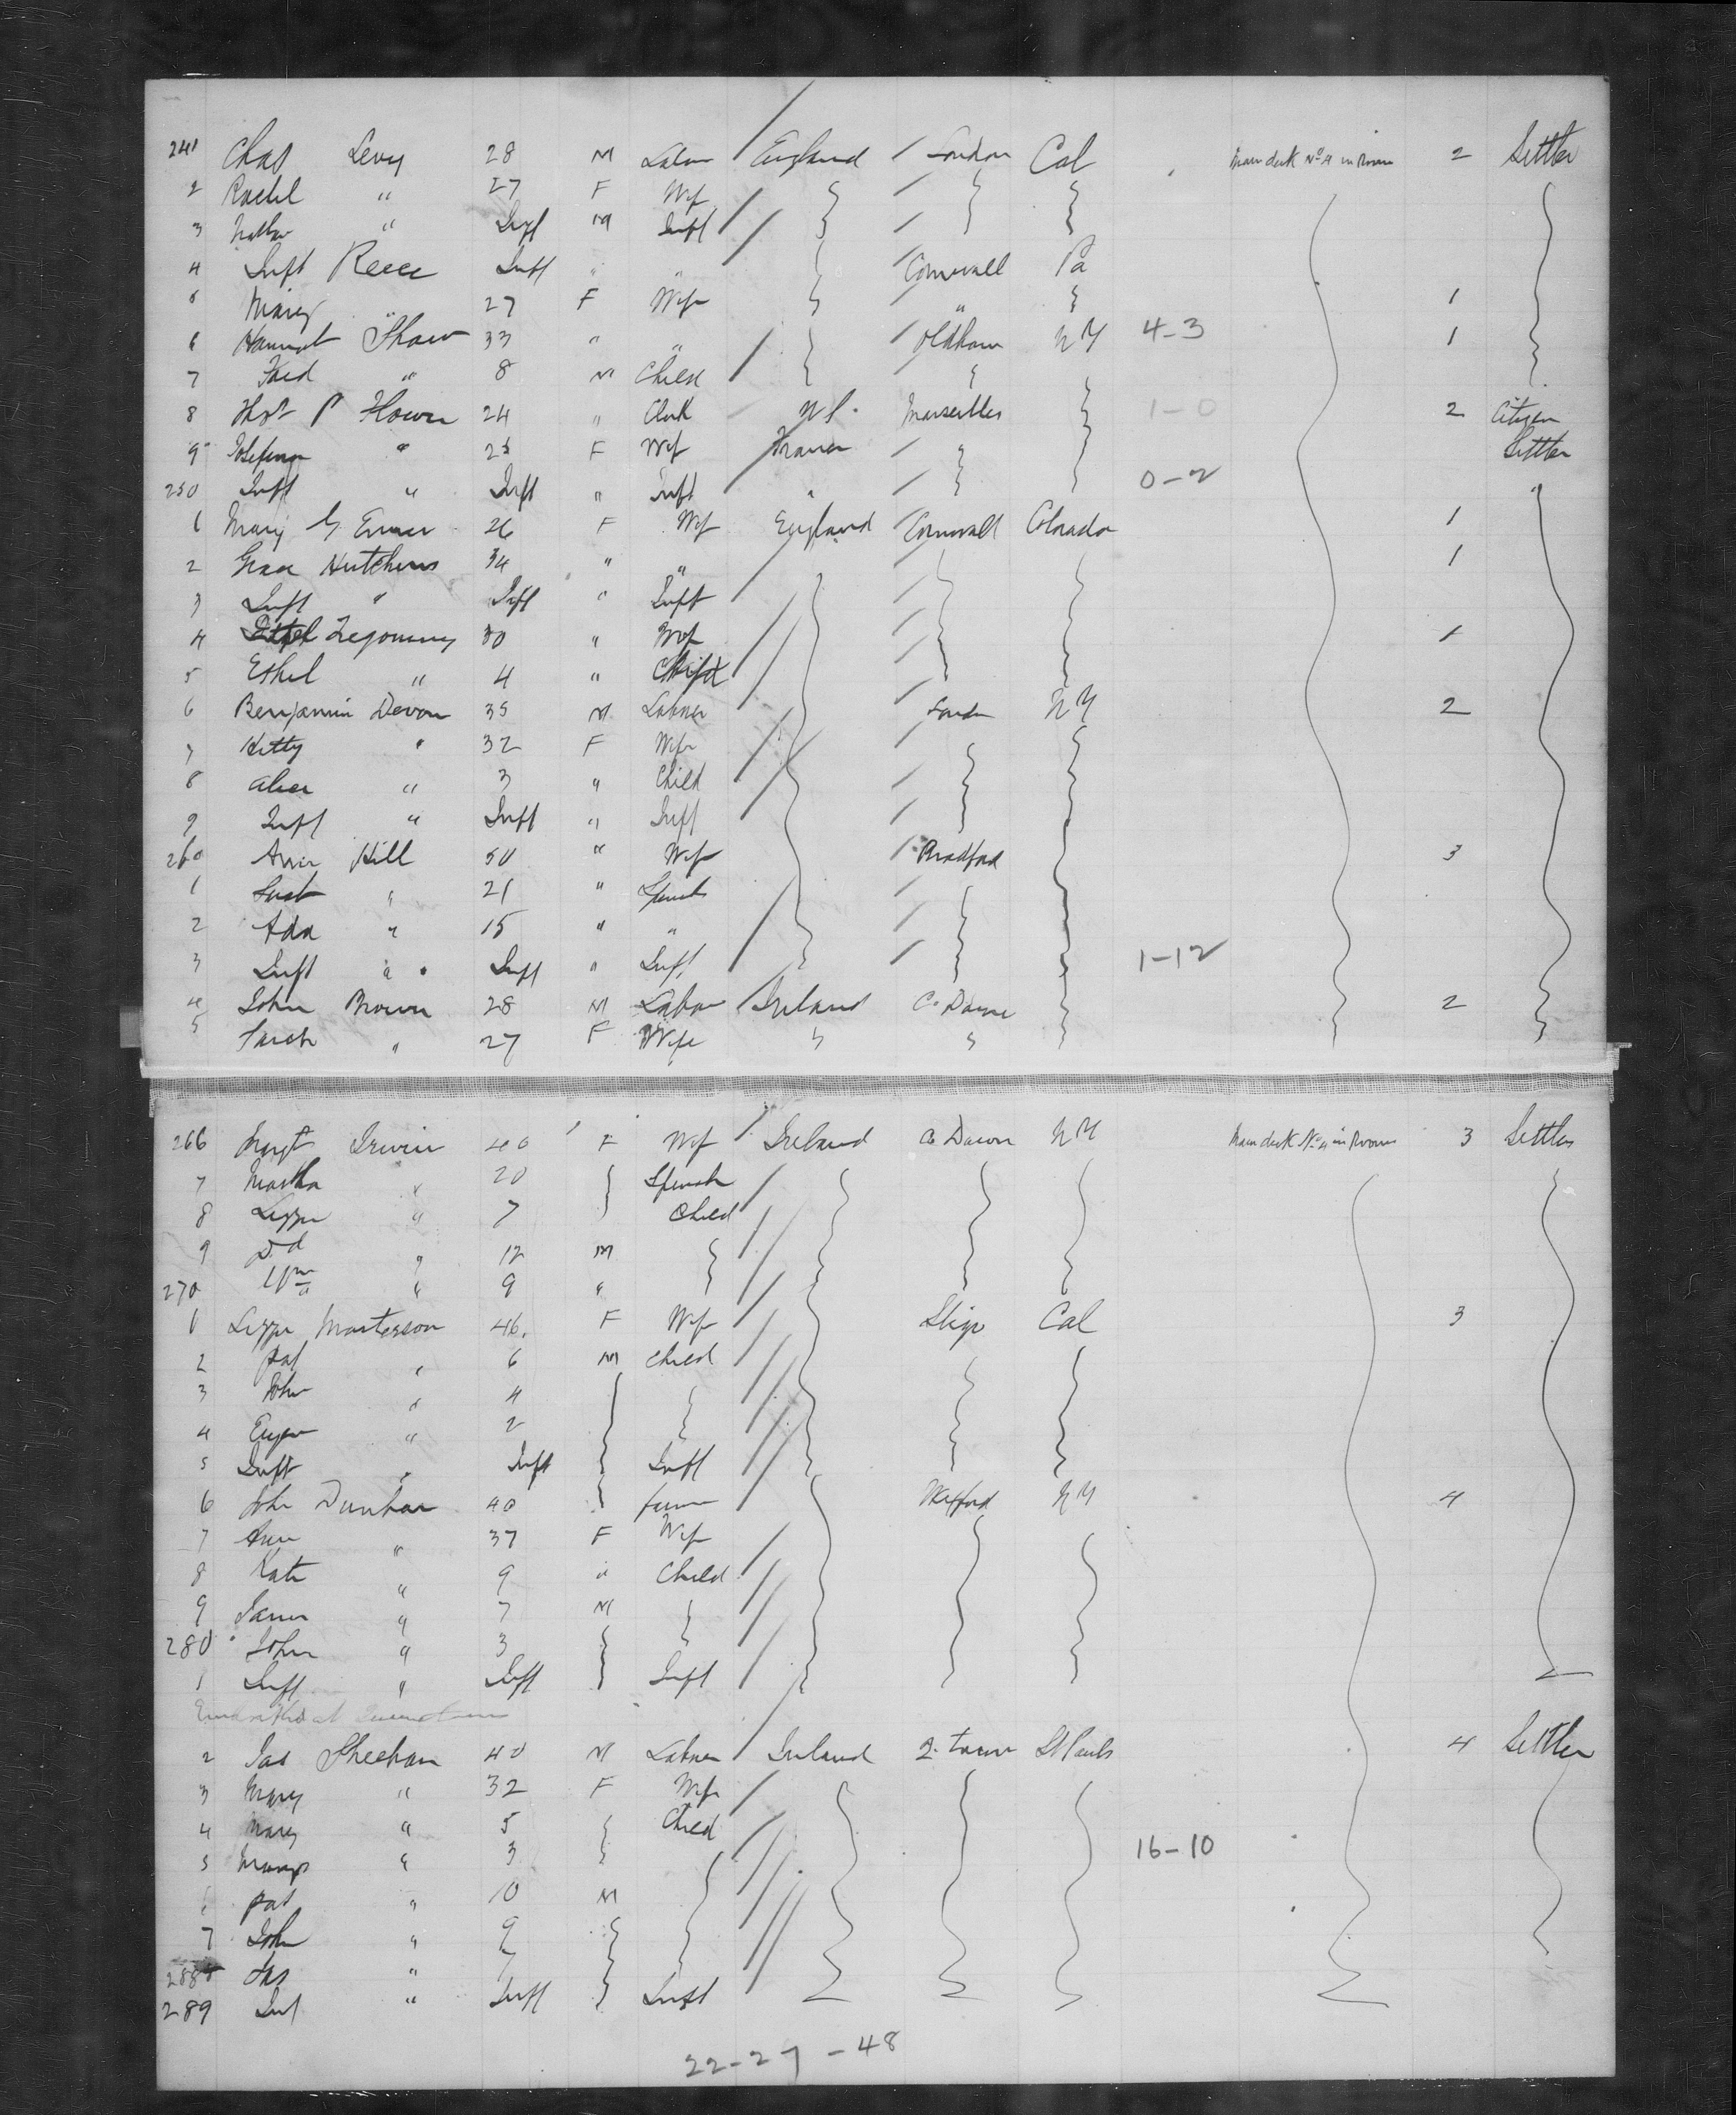 241 Chas Levy 28 M Labor England London Cal Main deck No 4 in Room 2 Settler
2 Rachel " 27 F Wife
3 Nathan " Inft M Inft
4 Inft Reece Inft " " Cornwall Pa
5 Mary " 27 F Wife " 1
6 Hannah Shaw 33 " " Oldham NY 4-3 1
7 Fred " 8 M Child
8 Thos P Flower 24 " Clerk Marseilles 1-0 2 Citizen
9 " F Wife France Settler
250 Inft " Inft " Inft " 0-2
1 Mary G 26 F Wife England Cornwall Colorado 1
2 Grace Hutchens 34 " " 1
3 Inft " Inft " Inft
4 30 " Wife 1
5 Ethel " 4 " Child
6 Benjamin Devon 35 M Laborer London NY 2
7 Kitty " 32 F Wife
8 Alice " 3 " Child
9 Inft " Inft " Inft
260 Ann Hill 50 " Wife Bradford 3
1 " 21 " Spinst
2 Ada " 15 " "
3 Inft " Inft " Inft 1-12
4 John Brown 28 M Labor Ireland Co Down 2
5 Sarah " 27 F Wife
266 Margt Irwin 40 F Wife Ireland Co Down NY Main deck No 4 in Room 3 Settler
7 Martha " 20 Spinster
8 Lizzie " 7 Child
9 Dd " 12 M
270 Wm " 9 "
1 Lizzie Masterson 46 F Wife Sligo Cal 3
2 Pat " 6 M Child
3 John " 4
4 Eugene " 2
5 Inft " Inft Inft
6 John Dunbar 40 farmer Wexford NY 4
7 Ann " 37 F Wife
8 Kate " 9 " Child
9 James " 7 M
280 John " 3
1 Inft " Inft Inft
Embarked at Queenstown
2 Jas Sheehan 40 M Laborer Ireland Q. town St Pauls 4 Settler
3 Mary " 32 F Wife
4 Mary " 5 Child
5 " 3 16-10
6 Pat " 10 M
7 John " 9
288 Jas " 7
289 Inf " Inft Inft
22-27-48